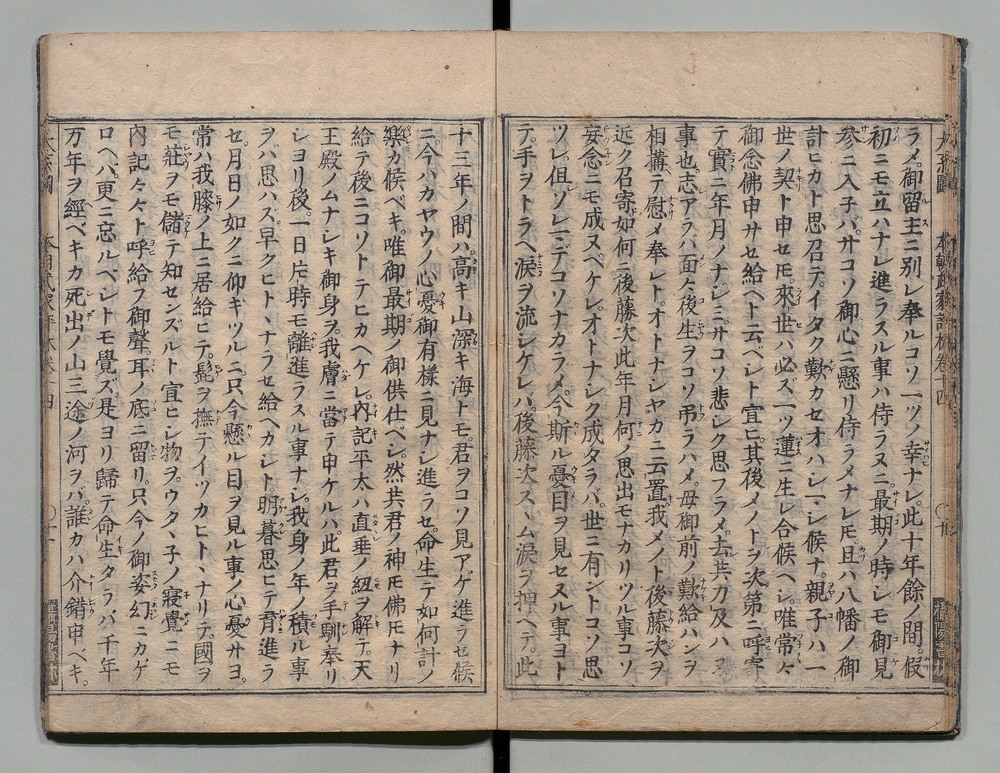 ラメ。御留主ニ別レ奉ルコソ一ツノ幸ナレ。此十年餘ノ間。假
初ニモ立ハナレ進ラスル事ハ侍ラヌニ。最期ノ時シモ御見
参ニ入子バ。サコソ御心ニ懸リ侍ラメナレ𪜈。且ハ八幡ノ御
計ヒカト思召テ。イタク歎カセオハシマシ候ナ。親子ハ一
世ノ契ト申セ𪜈。來世ハ必ズ一ツ蓮ニ生レ合候ヘシ。唯常々
御念佛申サセ給ヘト云ベシト宣ヒ。其後メノトヲ次第ニ呼寄
テ。實ニ年月ノナジミ。サコソ悲シク思フラメ。去共力及ハヌ
事也。志アラハ面々後生ヲコソ弔ラハメ。母御前ノ歎給ハンヲ
相搆テ慰メ奉レト。オトナシヤカニ云置。我メノト後藤次ヲ
近ク召寄。如何ニ後藤次此年月何ノ思出モナカリツル事コソ
妄念ニモ成ヌベケレ。オトナシク成タラバ。世ニ有ントコソ思
ツレ。但ソレマデコソナカラメ。今斯ル憂目ヲ見セヌル事ヨト
テ。手ヲトラヘ涙ヲ流シケレバ。後藤次スヽム涙ヲ押ヘテ。此
十三年ノ間ハ。高キ山深キ海トモ。君ヲコソ見アゲ進ラセ候
ニ。今ハカヤウノ心憂御有様ニ見ナシ進ラセ。命生テ如何計ノ
樂カ候ベキ。唯御最期ノ御供仕ベシ。然共君ノ神𪜈佛𪜈ナリ
給テ後ニコソトテヒカヘケレ。内記平太ハ直垂ノ紐ヲ解テ。天
王殿ノムナシキ御身ヲ。我膚ニ當テ申ケルハ。此君ヲ手馴奉リ
シヨリ後。一日片時モ離進ラスル事ナシ。我身ノ年ノ積ル事
ヲハ思ハス。早クヒトヽナラセ給ヘカシト。明暮思ヒテ育進ラ
セ。月日ノ如クニ仰ギツルニ。只今懸ル目ヲ見ル事ノ心憂サヨ。
常ハ我膝ノ上ニ居給ヒテ。髭ヲ撫テイツカヒトヽナリテ。國ヲ
モ莊ヲモ儲テ知センズルト宣ヒシ物ヲ。ウタヽ子ノ寢覺ニモ
内記々々ト呼給フ御聲。耳ノ底ニ留リ。只今ノ御姿幻ニカゲ
ロヘバ。更ニ忘ルベシトモ覺ズ。是ヨリ歸テ命生タラバ千年
万年ヲ經ベキカ。死出ノ山三途ノ河ヲバ。誰カハ介錯申ベキ。